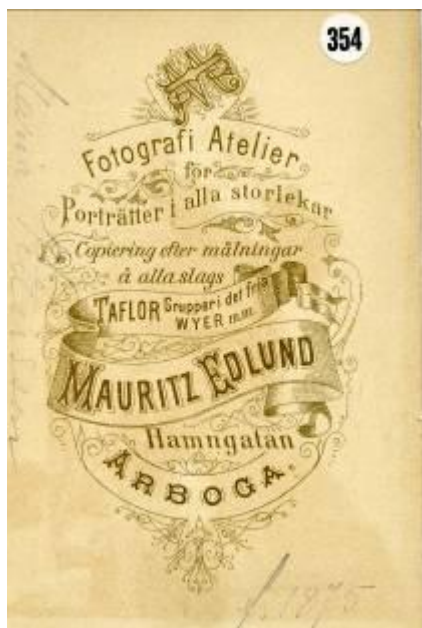 354
Fotografi Atelier
för
Porträtter i alla storlekar
Copiering efter målningar
å alla slags
TAFLOR Grupper i det fria
WYER m.m.
MAURITZ EDLUND
Hamngatan
ARBOGA.
f. 1875